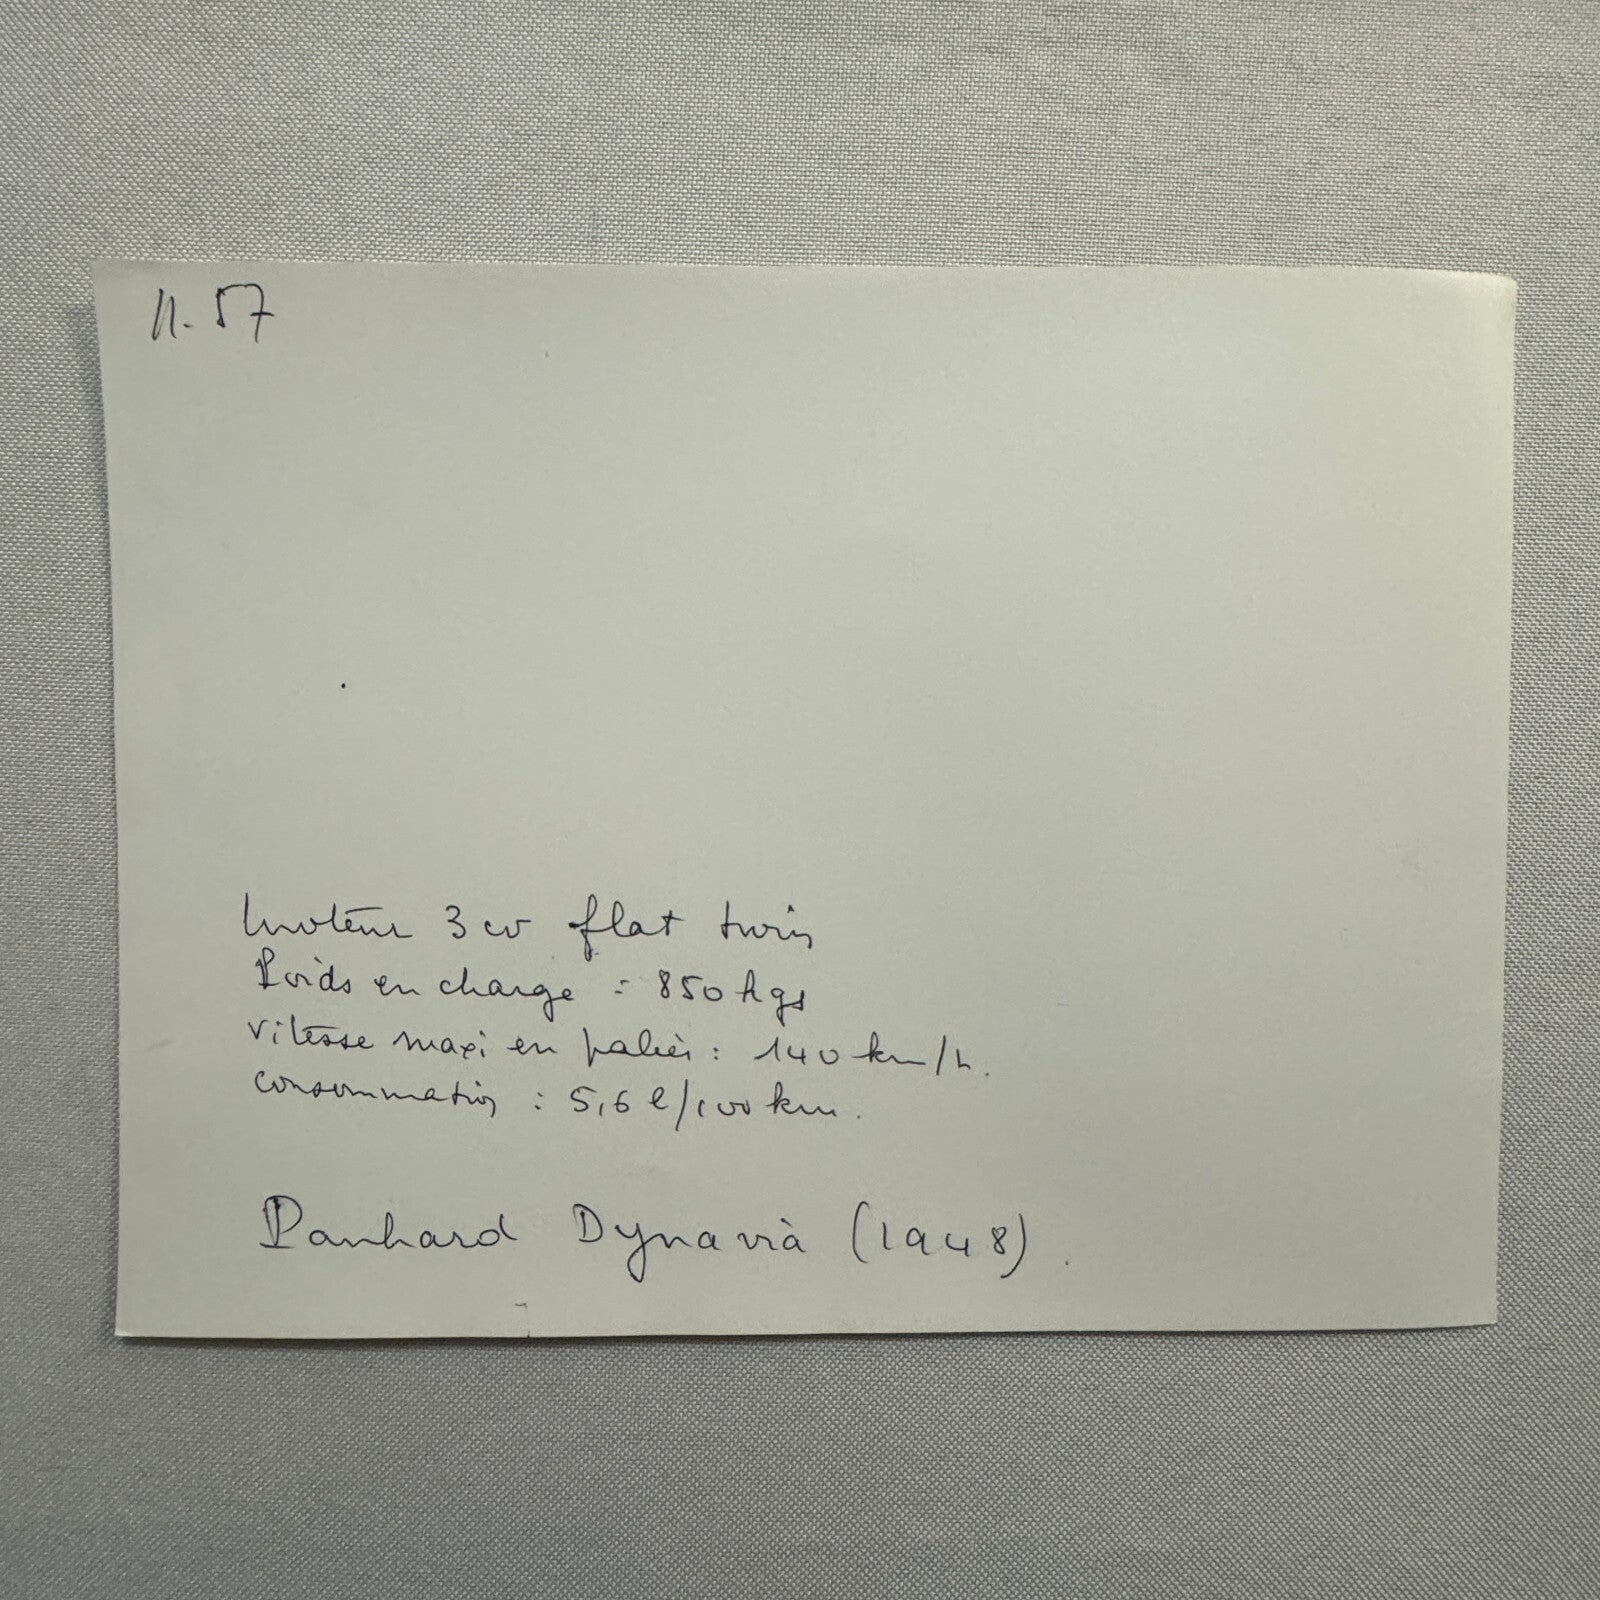 11. 57
Moteur 3 cv flat twin
Poids en charge : 850 kgs
vitesse maxi en palier : 140 km/h.
consommation : 5,6 l/100 km.
Panhard Dynavià (1948).